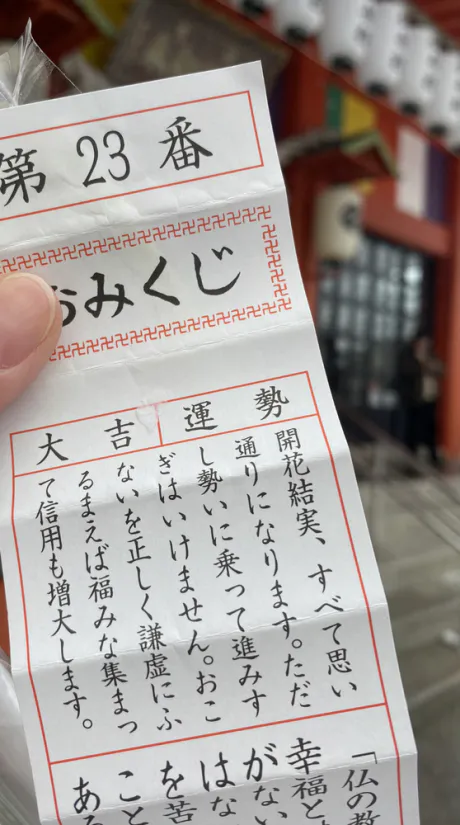 第 23 番
おみくじ
運勢
大吉
開花結実、すべて思い
通りになります。ただ
し勢いに乗って進みす
ぎはいけません。おこ
ないを正しく謙虚にふ
るまえば福みな集まっ
て信用も増大します。
「仏の教
幸福と
がない
はな
を苦
こと
ある